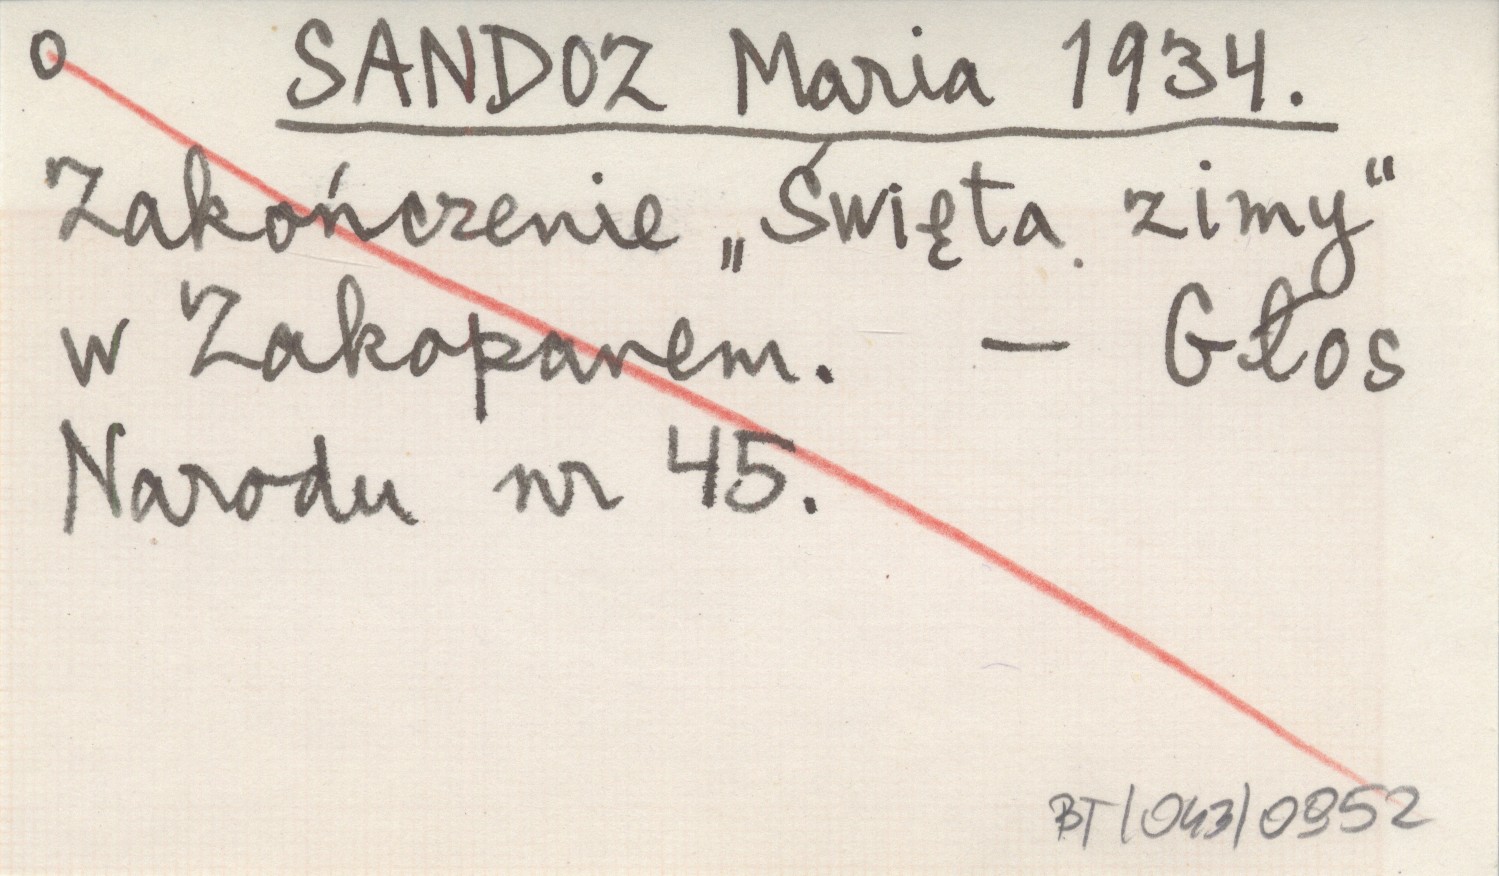 O SANDOZ Maria 1934.
Zakończenie „Święta zimy“
w Zakopanem. — Głos
Narodu nr 45.
BT/043/0952